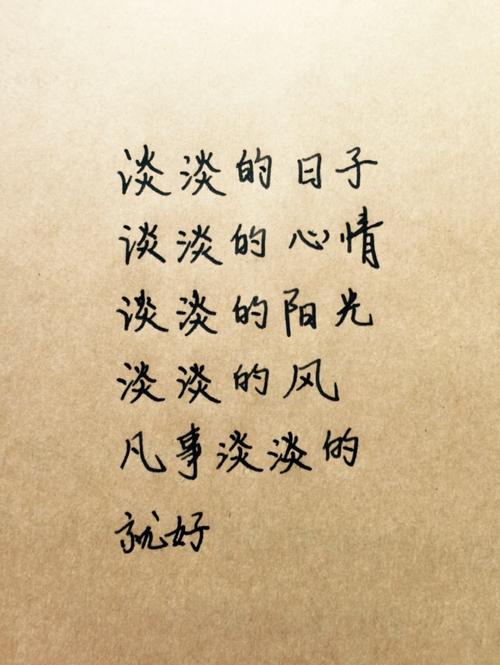 淡淡的日子
淡淡的心情
淡淡的阳光
淡淡的风
凡事淡淡的
就好